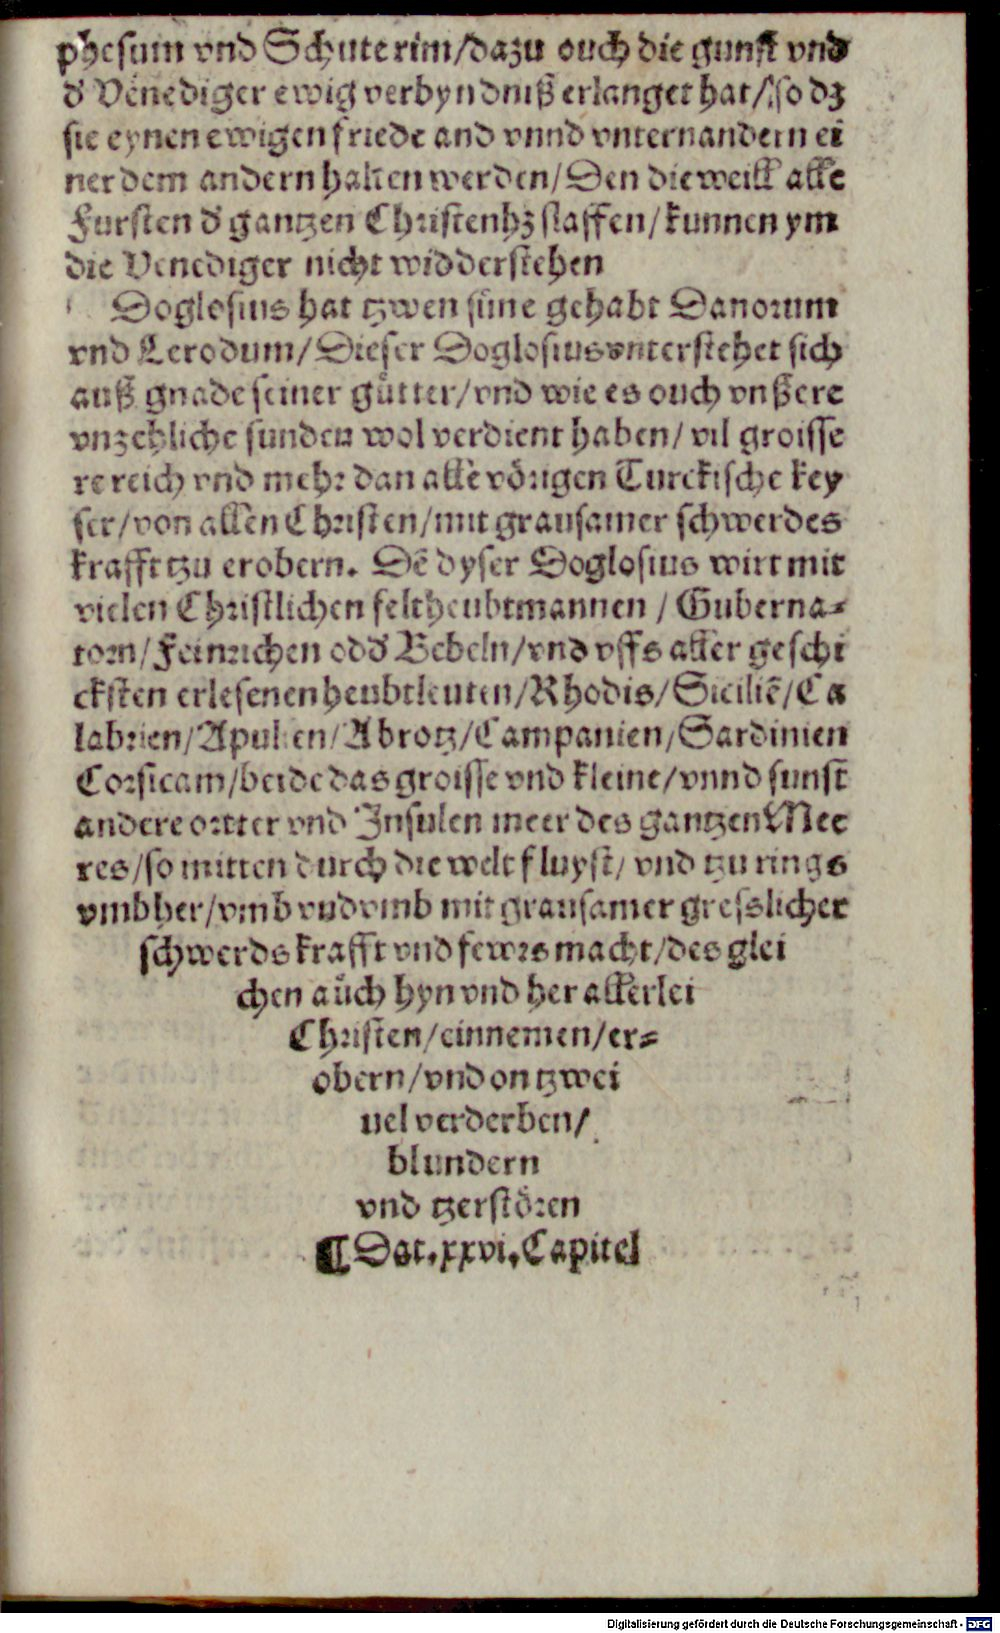 phesum vnd Schuterim/dazu ouch die gunst vnd
đ Venediger ewig verbyndniß erlanget hat/so dz
sie eynen ewigen friede and vnnd vnternandern ei
ner dem andern halten werden/Den dieweill alle
Fursten đ gantzen Christenhz slaffen/kunnen ym
die Venediger nicht widderstehen
Doglosius hat tzwen süne gehabt Danorum
vnd Lerodum/Dieser Doglosius vnterstehet sich
auß gnade seiner gůtter/vnd wie es ouch vnßere
vnzehliche sunden wol verdient haben/vil groisse
re reich vnd mehr dan alle vörigen Turckische key
ser/von allen Christen/mit grausamer schwerdes
krafft tzu erobern. Dē dyser Doglosius wirt mit
vielen Christlichen feltheubtmannen/Guberna⸗
torn/Feinrichen odđ Bebeln/vnd vffs aller geschi
cksten erlesenen heubtleuten/Rhodis/Siciliē/Ca
labrien/Apulien/Abrotz/Campanien/Sardinien
Corsicam/beide das groisse vnd kleine/vnnd sunst
andere ortter vnd Insulen meer des gantzen Mee
res/so mitten durch die welt fluyst/vnd tzu rings
vmbher/vmb vnd vmb mit grausamer gresslicher
schwerds krafft vnd fewrs macht/des glei
chen aůch hyn vnd her allerlei
Christen/einnemen/er⸗
obern/vnd on tzwei
uel verderben/
blundern
vnd tzerstören
¶ Dat.xxvi.Capitel
Digitalisierung gefördert durch die Deutsche Forschungsgemeinschaft - DFG